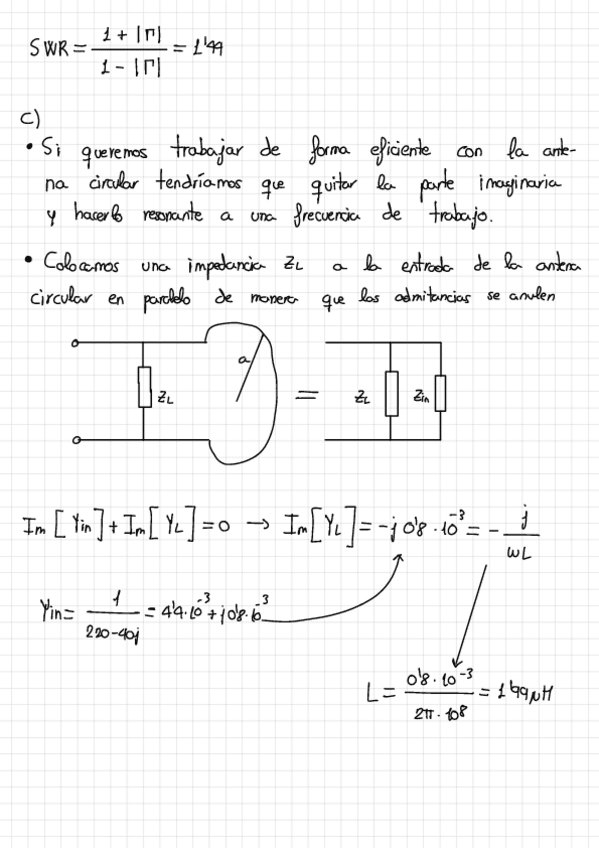 SWR = \frac{1 + |Γ|}{1 - |Γ|} = 1'44
c)
• Si queremos trabajar de forma eficiente con la ante-
na circular tendríamos que quitar la parte imaginaria
y hacerlo resonante a una frecuencia de trabajo.
• Colocamos una impedancia ZL a la entrada de la antena
circular en paralelo de manera que las admitancias se anulen
ZL a = ZL Zin
Im[Yin] + Im[YL] = 0 → Im[YL] = -j 0'8 · 10^{-3} = - \frac{j}{ωL}
Yin = \frac{1}{220-40j} = 4'4·10^{-3} + j0'8·10^{-3}
L = \frac{0'8 · 10^{-3}}{2π · 10^8} = 1'99 μH